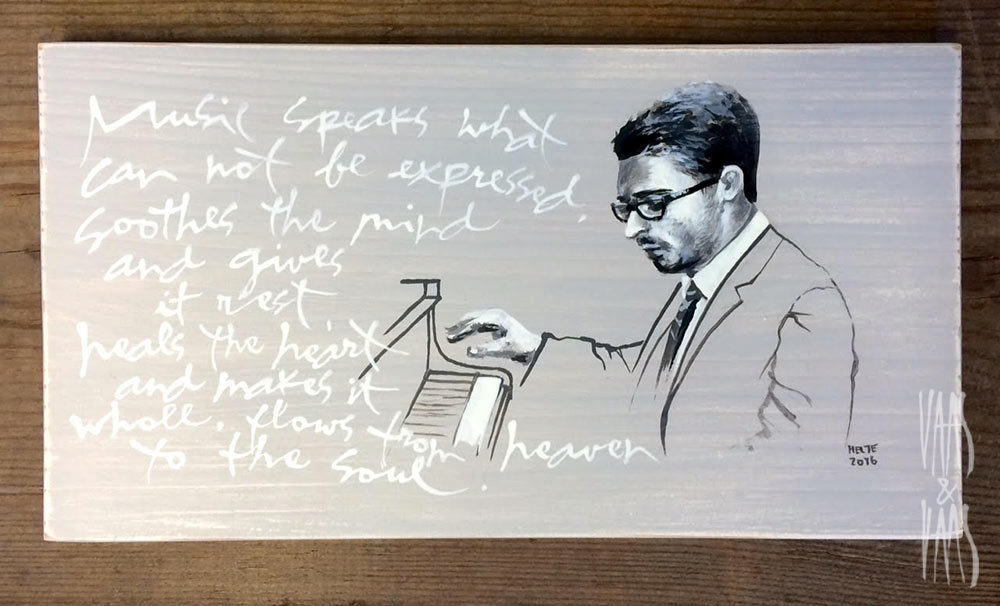 Music speaks what
can not be expressed,
soothes the mind
and gives
it rest
heals the heart
and makes it
whole, flows from heaven
to the soul.
HELJE
2016
VAAS
&
VAAS